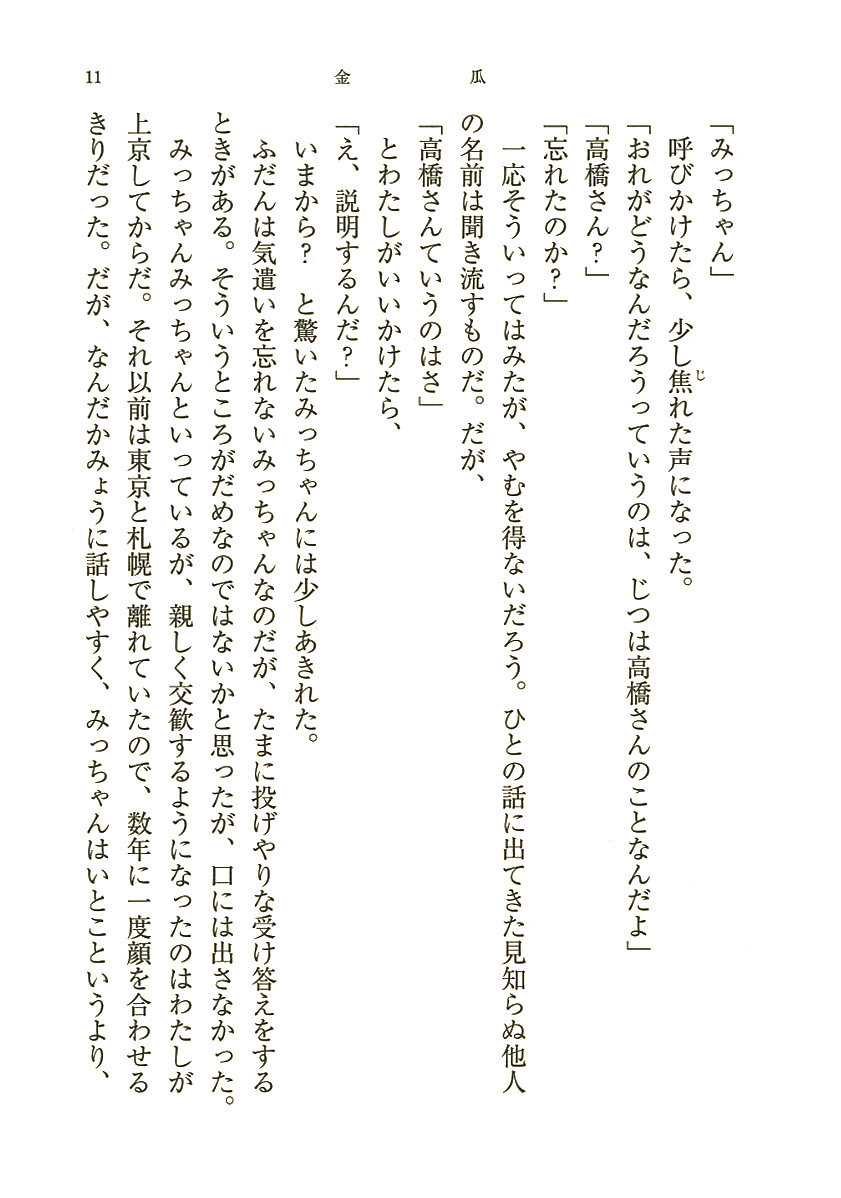 11
金瓜
「みっちゃん」
呼びかけたら、少し焦れた声になった。
じ
「おれがどうなんだろうっていうのは、じつは高橋さんのことなんだよ」
「高橋さん？」
「忘れたのか？」
一応そういってはみたが、やむを得ないだろう。ひとの話に出てきた見知らぬ他人
の名前は聞き流すものだ。だが、
「高橋さんていうのはさ」
とわたしがいいかけたら、
「え、説明するんだ？」
いまから？　と驚いたみっちゃんには少しあきれた。
ふだんは気遣いを忘れないみっちゃんなのだが、たまに投げやりな受け答えをする
ときがある。そういうところがだめなのではないかと思ったが、口には出さなかった。
みっちゃんみっちゃんといっているが、親しく交歓するようになったのはわたしが
上京してからだ。それ以前は東京と札幌で離れていたので、数年に一度顔を合わせる
きりだった。だが、なんだかみょうに話しやすく、みっちゃんはいとこというより、